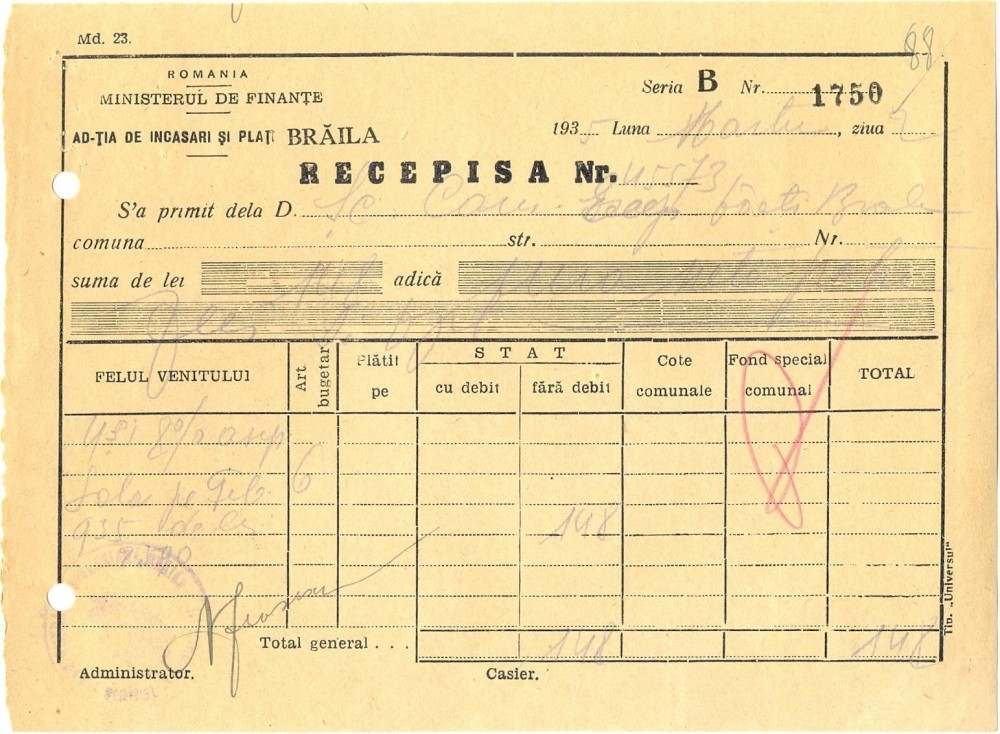 Md. 23.
88
ROMANIA
MINISTERUL DE FINANȚE
Seria B Nr. 1750
AD-ȚIA DE INCASARI ȘI PLATI BRĂILA
1935 Luna Martie, ziua 2
RECEPISA Nr. 45573
S'a primit dela D. Sc. Com.
comuna str. Nr.
suma de lei 148 adică una sută patru
zeci și opt
FELUL VENITULUI
Art bugetar
Plătit pe
STAT
cu debit
fără debit
Cote comunale
Fond special comunal
TOTAL
8% asup
Sala pe Feb. 6
935 de lei 148
Total general . . . 148 148
Administrator.
Casier.
Tip. „Universul"